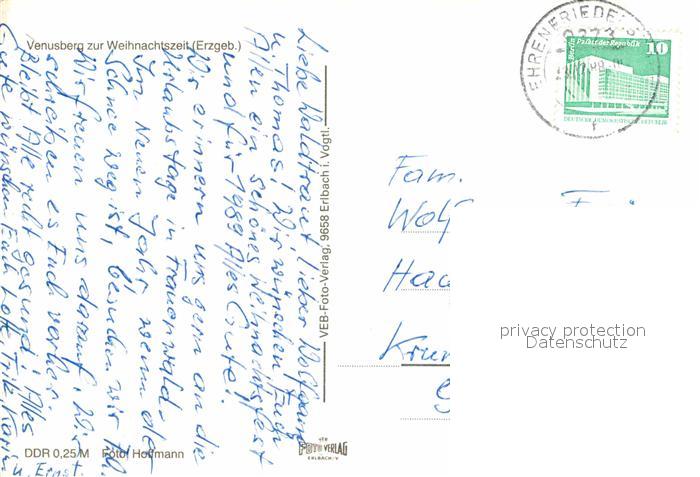 Venusberg zur Weihnachtszeit (Erzgeb.)
Liebe Waldtraut lieber Wolfgang
u. Thomas! Wir wünschen Euch
Allen ein schönes Weihnachtsfest
und für 1989 Alles Gute!
Wir erinnern uns gern an die
Urlaubstage in Frauenwald.
Im Neuen Jahr wenn der
Schnee weg ist, besuchen wir
Wir freuen uns darauf. Wir
schreiben es Euch vorher.
Bleibt Alle recht gesund, Alles
Gute wünschen Euch Karin
u. Ernst.
DDR 0,25 M Foto: Hoffmann
VEB-Foto-Verlag, 9658 Erlbach i. Vogtl.
VEB
FOTO VERLAG
ERLBACH/V
EHRENFRIEDE
Berlin Palast der Republik
10
DEUTSCHE DEMOKRATISCHE REPUBLIK
Fam.
Wolf
Haa
Krum
privacy protection
Datenschutz